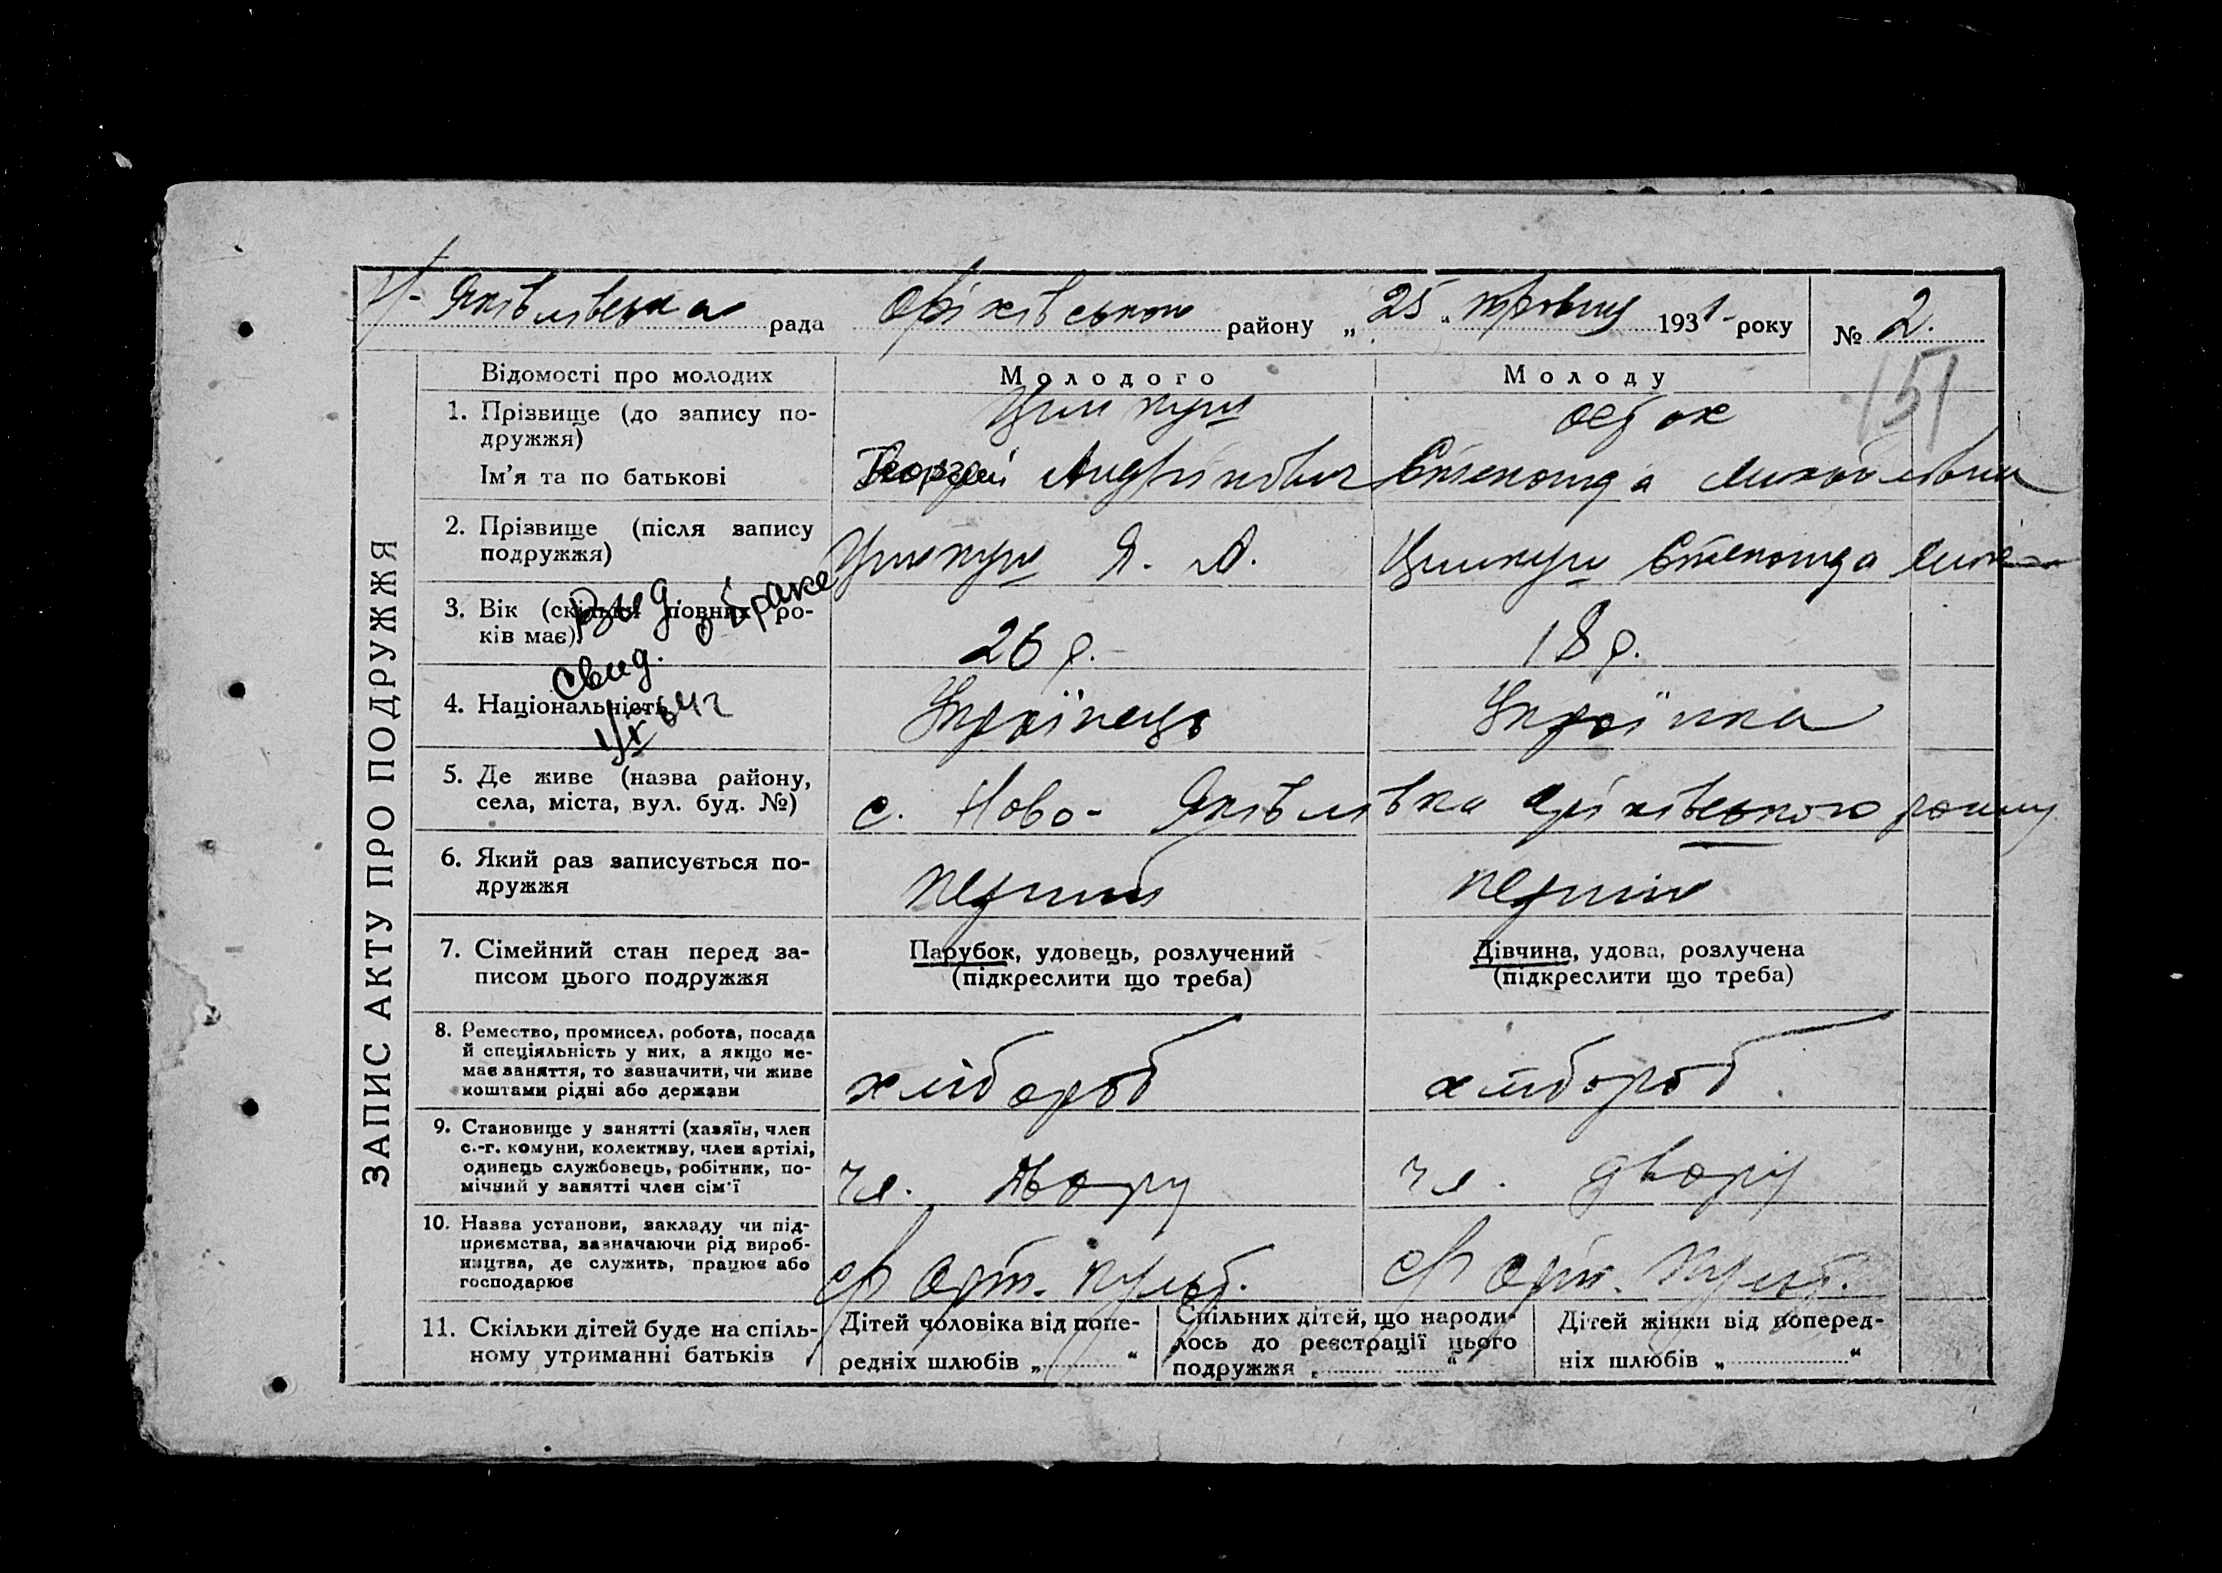 Н-Яківлівська рада Оріхівського району „25“ травня 1931 року № 2.
151
Відомості про молодих Молодого Молоду
1. Прізвище (до запису подружжя)
Ім'я та по батькові Андріиович Степонида Михайлівна
2. Прізвище (після запису подружжя) Я. А. Степонида
3. Вік (скільки повних років має) 26 р. 18 р.
Выд. свид. о браке
4. Національність Українець Українка
5. Де живе (назва району, села, міста, вул. буд. №) с. Ново-Яківлівка Оріхівського району
6. Який раз записується подружжя перший перший
7. Сімейний стан перед записом цього подружжя Парубок, удовець, розлучений (підкреслити що треба) Дівчина, удова, розлучена (підкреслити що треба)
8. Ремество, промисел, робота, посада й спеціяльність у них, а якщо немає заняття, то зазначити, чи живе коштами рідні або держави хлібороб хлібороб
9. Становище у занятті (хазяїн, член с.-г. комуни, колективу, член артілі, одинець службовець, робітник, помічний у занятті член сім'ї чл. двору чл. двору
10. Назва установи, закладу чи підприємства, зазначаючи рід виробництва, де служить, працює або господарює
11. Скільки дітей буде на спільному утриманні батьків Дітей чоловіка від попередніх шлюбів „ “ Спільних дітей, що народилось до реєстрації цього подружжя „ “ Дітей жінки від попередніх шлюбів „ “
ЗАПИС АКТУ ПРО ПОДРУЖЖЯ